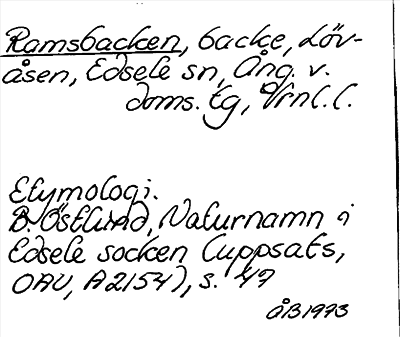 Ramsbacken, backe, Löv-
åsen, Edsele sn, Ång. v.
doms. tg, Vrnl. l.
Etymologi.
B. Östlund, Naturnamn i
Edsele socken (uppsats,
OAU, A2154), s. 47
ÅB1973